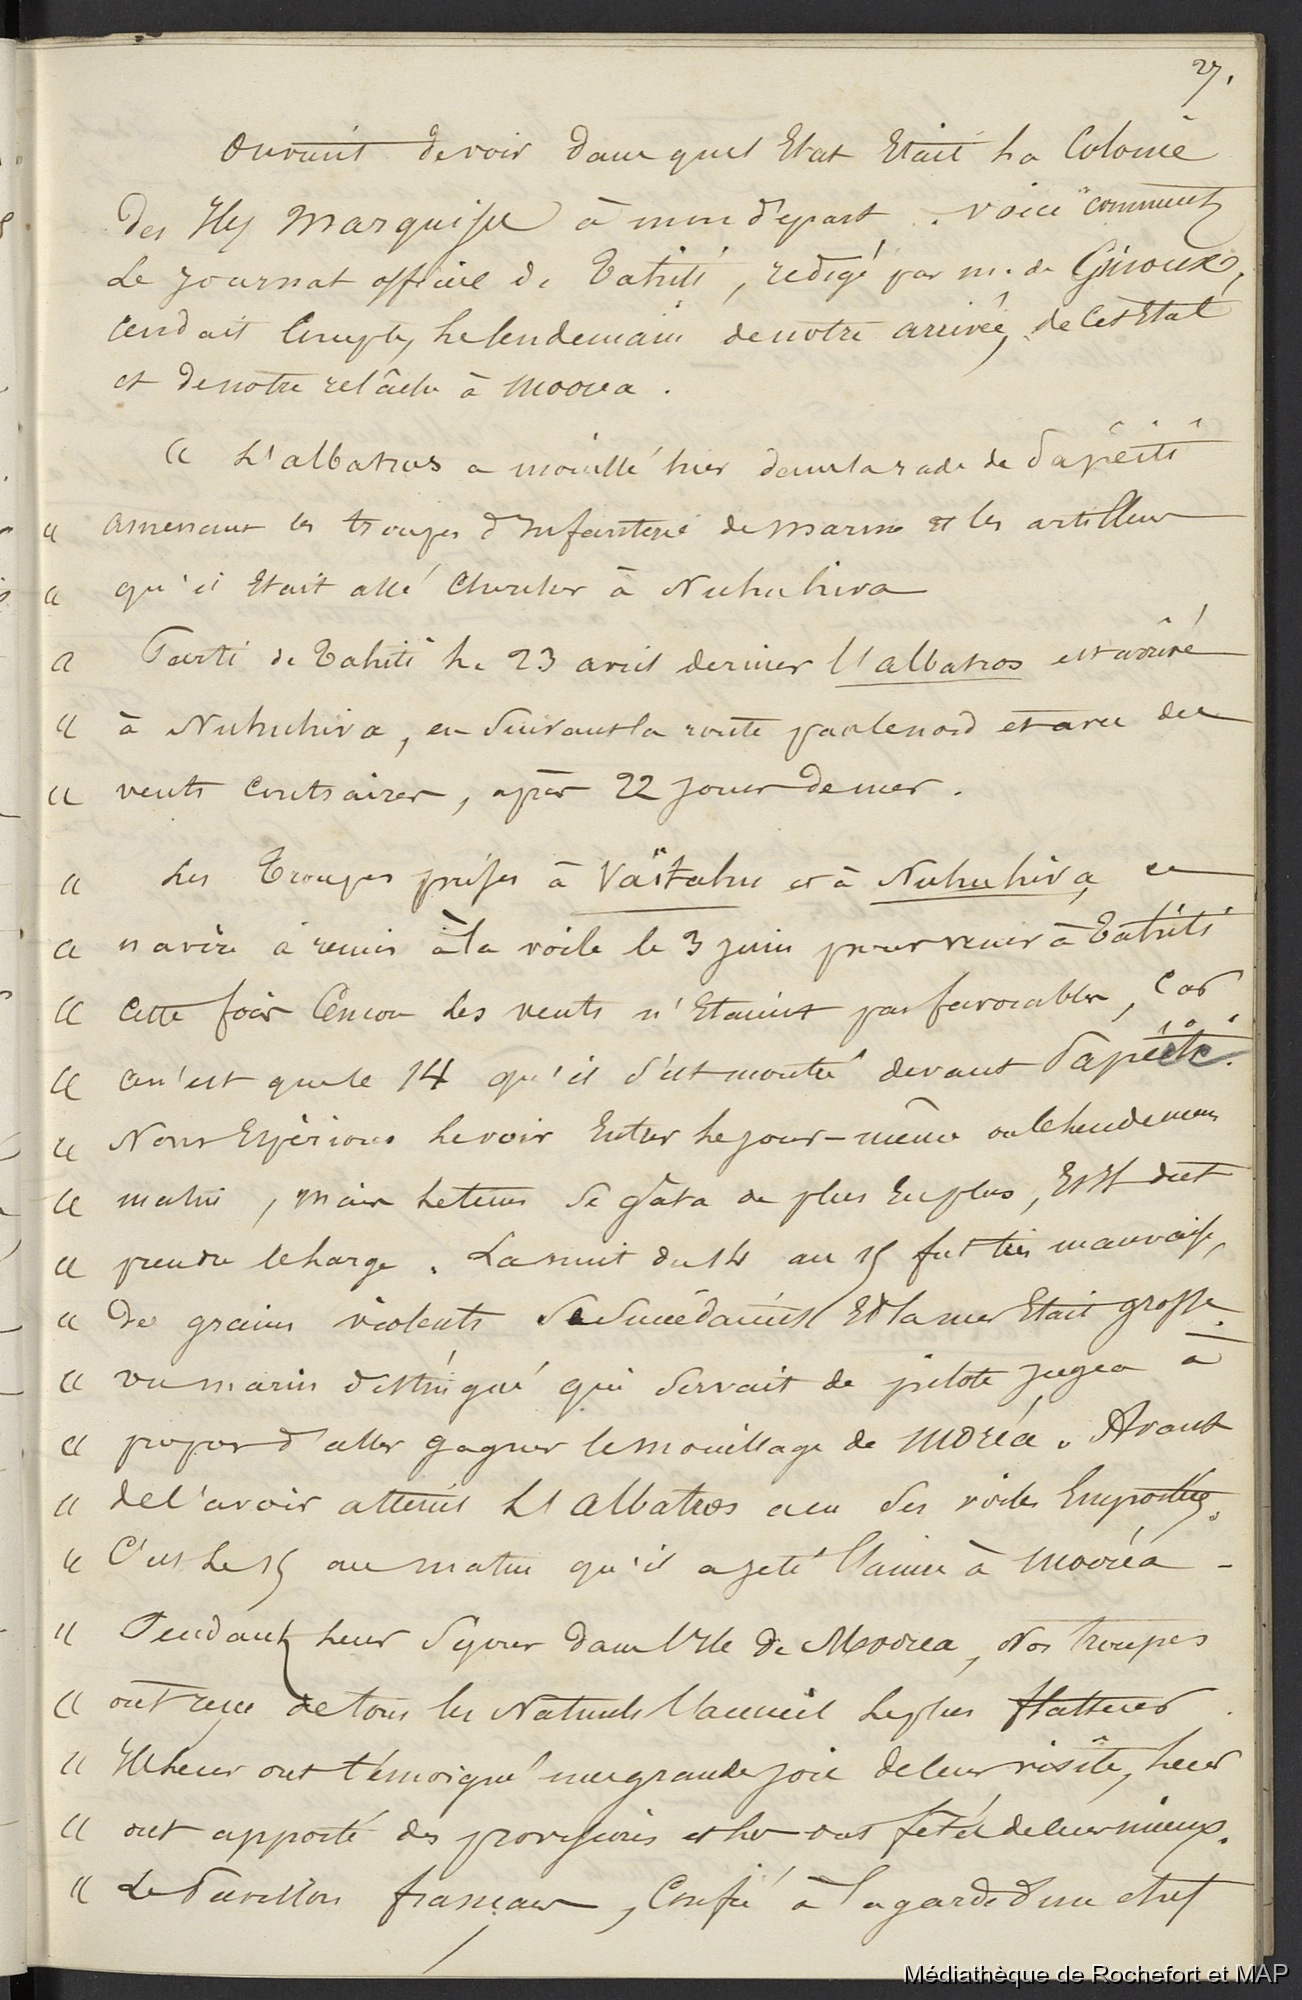 27.
On vient de voir dans quel Etat Etait La Colonie
des Iles Marquises à mon départ. Voici comment
Le Journal officiel de Tahiti, redigé par m. de Ginoux,
rendait Compte, Le lendemain de notre arrivée, de Cet Etat
et de notre relâche à Moorea.
« L'albatros a mouillé hier dans la rade de Papéiti
« amenant les troupes d'Infanterie de Marine et les artilleurs
« qu'il Etait allé Chercher à Nuhuhiva
« Parti de Tahiti Le 23 avril dernier l'albatros est arrivé
« à Nuhuhiva, en Suivant la route par le nord et avec des
« vents Contraires, après 22 jours de mer.
« Les Troupes prises à Vaïtahu et à Nuhuhiva, ce
« navire a remis à la voile le 3 juin pour venir à Tahiti
« Cette fois Encore Les vents n'Etaient pas favorables, Car
« ce n'est que le 14 qu'il s'est montré devant Papéiti.
« Nous Espérions Le voir Entrer Le jour-même ou le Lendemain
« matin, mais Le tems Se gâta de plus En plus, Et Il dut
« prendre le Large. La nuit du 14 au 15 fut très mauvaise,
« De grains violents Se Succédaient Et la mer Etait grosse.
« un marin distingué qui Servait de pilote jugea à
« propos d'aller gagner le mouillage de Moréa. Avant
« de l'avoir atteint L'albatros a eu Ses voiles Emportées.
« C'est Le 15 au matin qu'il a jeté l'ancre à Mooréa -
« Pendant Leur Séjour dans l'Ile de Moorea, Nos Troupes
« ont reçu de tous les Naturels l'accueil Le plus flatteur.
« Ils Leur ont témoigné une grande joie de leur visite, Leur
« ont apporté des provisions et Les ont fêtés de leur mieux.
« Le Pavillon français, Confié à la garde d'un chef
Médiathèque de Rochefort et MAP